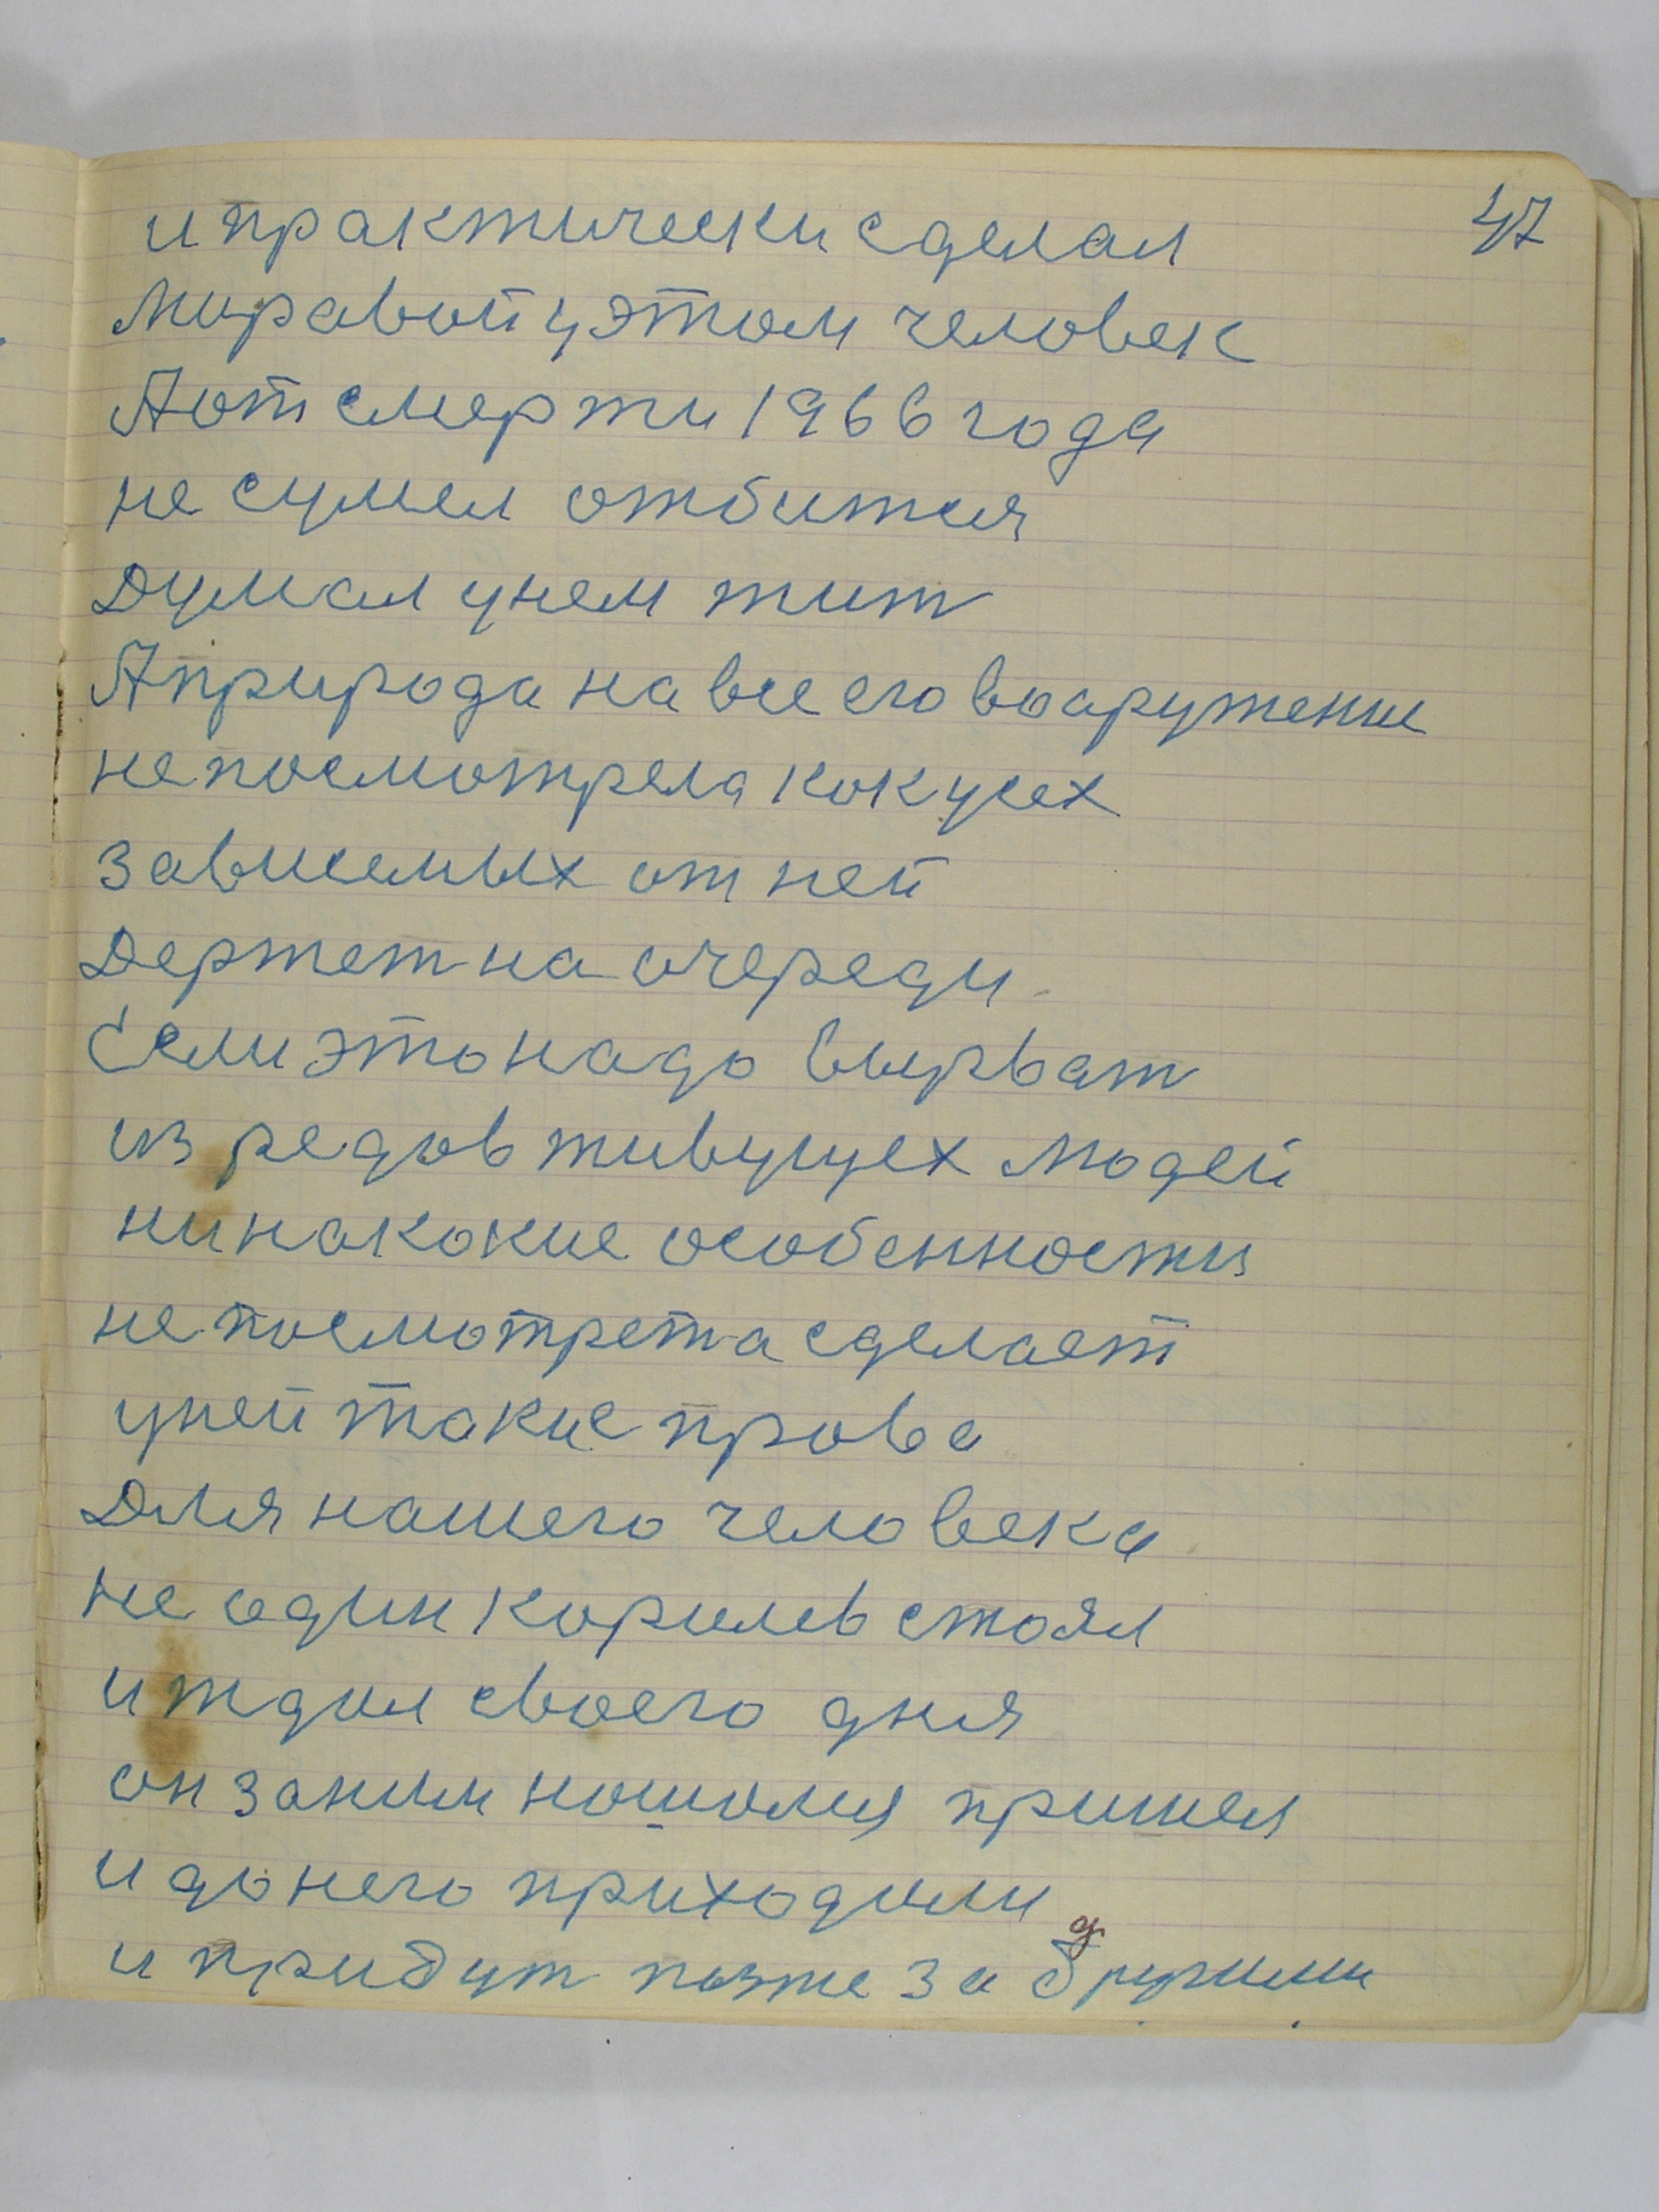 47
и практически сделал
мировой у этом человек
А от смерти 1966 года
не сумел отбится
Думал у нем жит
А природа на все его воаружение
не посмотрела как у сех
зависемых от ней
Держет на очереди
Если это надо вырват
из редов живущех людей
ни на какие особенности
не посмотрет а сделает
у ней такие права
Для нашего человека
не один Королев стоял
и ждал своего дня
он за ним нашолся пришел
и до него приходили
и придут позже за другими